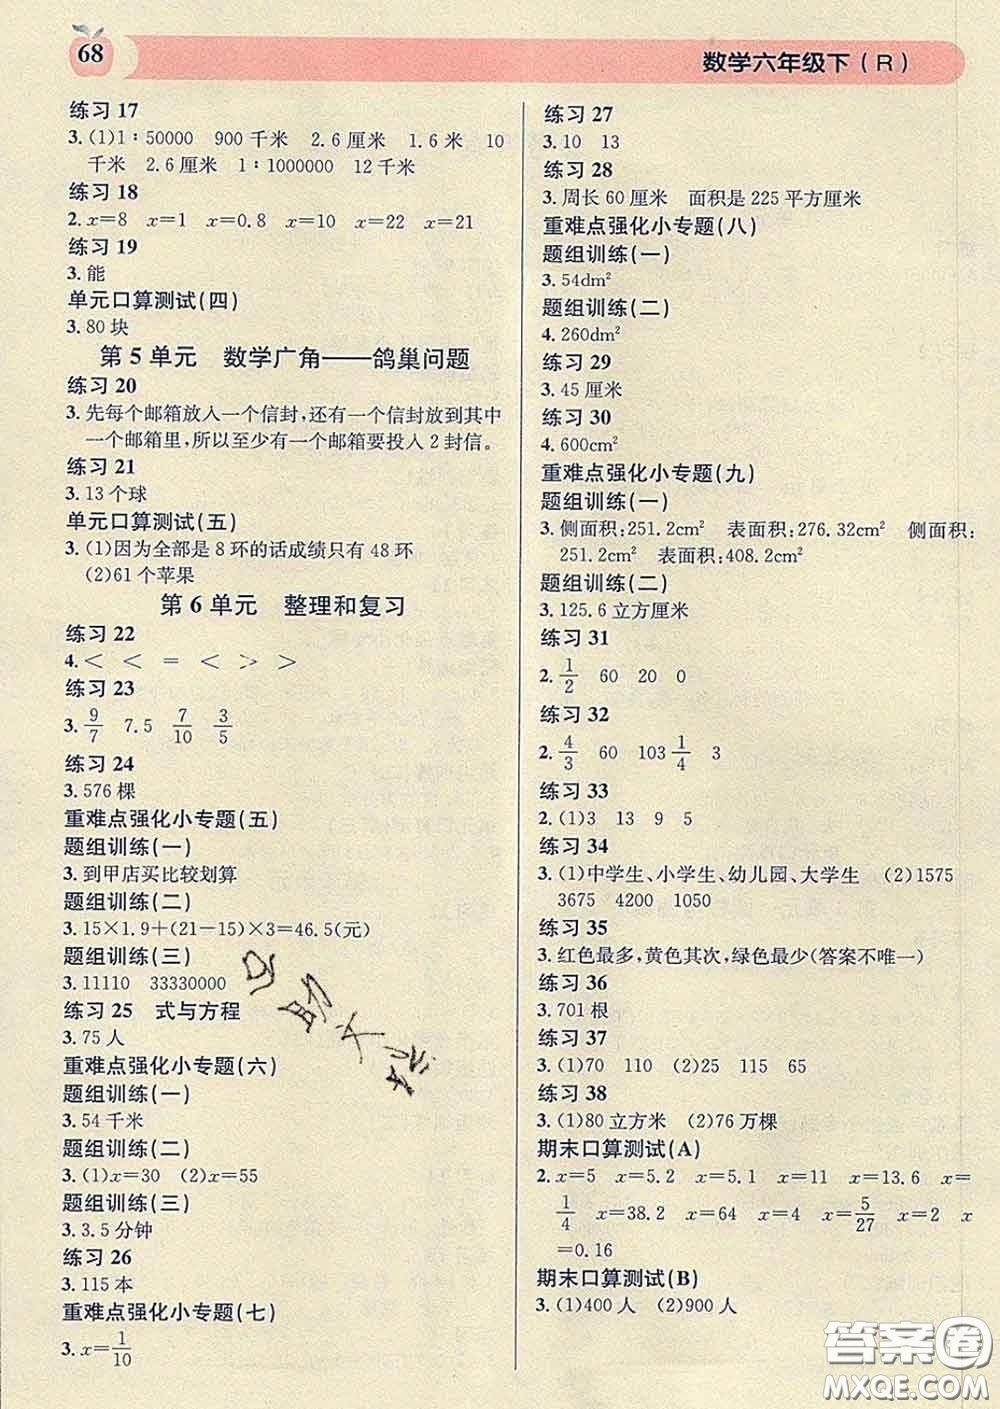 68
数学六年级下(R)
练习 17
3.(1)1∶50000 900 千米 2.6 厘米 1.6 米 10
千米 2.6 厘米 1∶1000000 12 千米
练习 18
2.x=8 x=1 x=0.8 x=10 x=22 x=21
练习 19
3.能
单元口算测试(四)
3.80 块
第 5 单元 数学广角——鸽巢问题
练习 20
3.先每个邮箱放入一个信封,还有一个信封放到其中
一个邮箱里,所以至少有一个邮箱要投入 2 封信。
练习 21
3.13 个球
单元口算测试(五)
3.(1)因为全部是 8 环的话成绩只有 48 环
(2)61 个苹果
第 6 单元 整理和复习
练习 22
4.< < = < > >
练习 23
3. 9/7 7.5 7/10 3/5
练习 24
3.576 棵
重难点强化小专题(五)
题组训练(一)
3.到甲店买比较划算
题组训练(二)
3.15×1.9+(21-15)×3=46.5(元)
题组训练(三)
3.11110 33330000
练习 25 式与方程
3.75 人
重难点强化小专题(六)
题组训练(一)
3.54 千米
题组训练(二)
3.(1)x=30 (2)x=55
题组训练(三)
3.3.5 分钟
练习 26
3.115 本
重难点强化小专题(七)
3.x=1/10
练习 27
3.10 13
练习 28
3.周长 60 厘米 面积是 225 平方厘米
重难点强化小专题(八)
题组训练(一)
3.54dm²
题组训练(二)
4.260dm²
练习 29
3.45 厘米
练习 30
4.600cm²
重难点强化小专题(九)
题组训练(一)
3.侧面积:251.2cm² 表面积:276.32cm² 侧面积:
251.2cm² 表面积:408.2cm²
题组训练(二)
3.125.6 立方厘米
练习 31
2. 1/2 60 20 0
练习 32
2. 4/3 60 103 1/4 3
练习 33
2.(1)3 13 9 5
练习 34
3.(1)中学生、小学生、幼儿园、大学生 (2)1575
3675 4200 1050
练习 35
3.红色最多,黄色其次,绿色最少(答案不唯一)
练习 36
3.701 根
练习 37
3.(1)70 110 (2)25 115 65
练习 38
3.(1)80 立方米 (2)76 万棵
期末口算测试(A)
2.x=5 x=5.2 x=5.1 x=11 x=13.6 x=
1/4 x=38.2 x=64 x=4 x=5/27 x=2 x
=0.16
期末口算测试(B)
3.(1)400 人 (2)900 人
答案圈
MXQE.COM